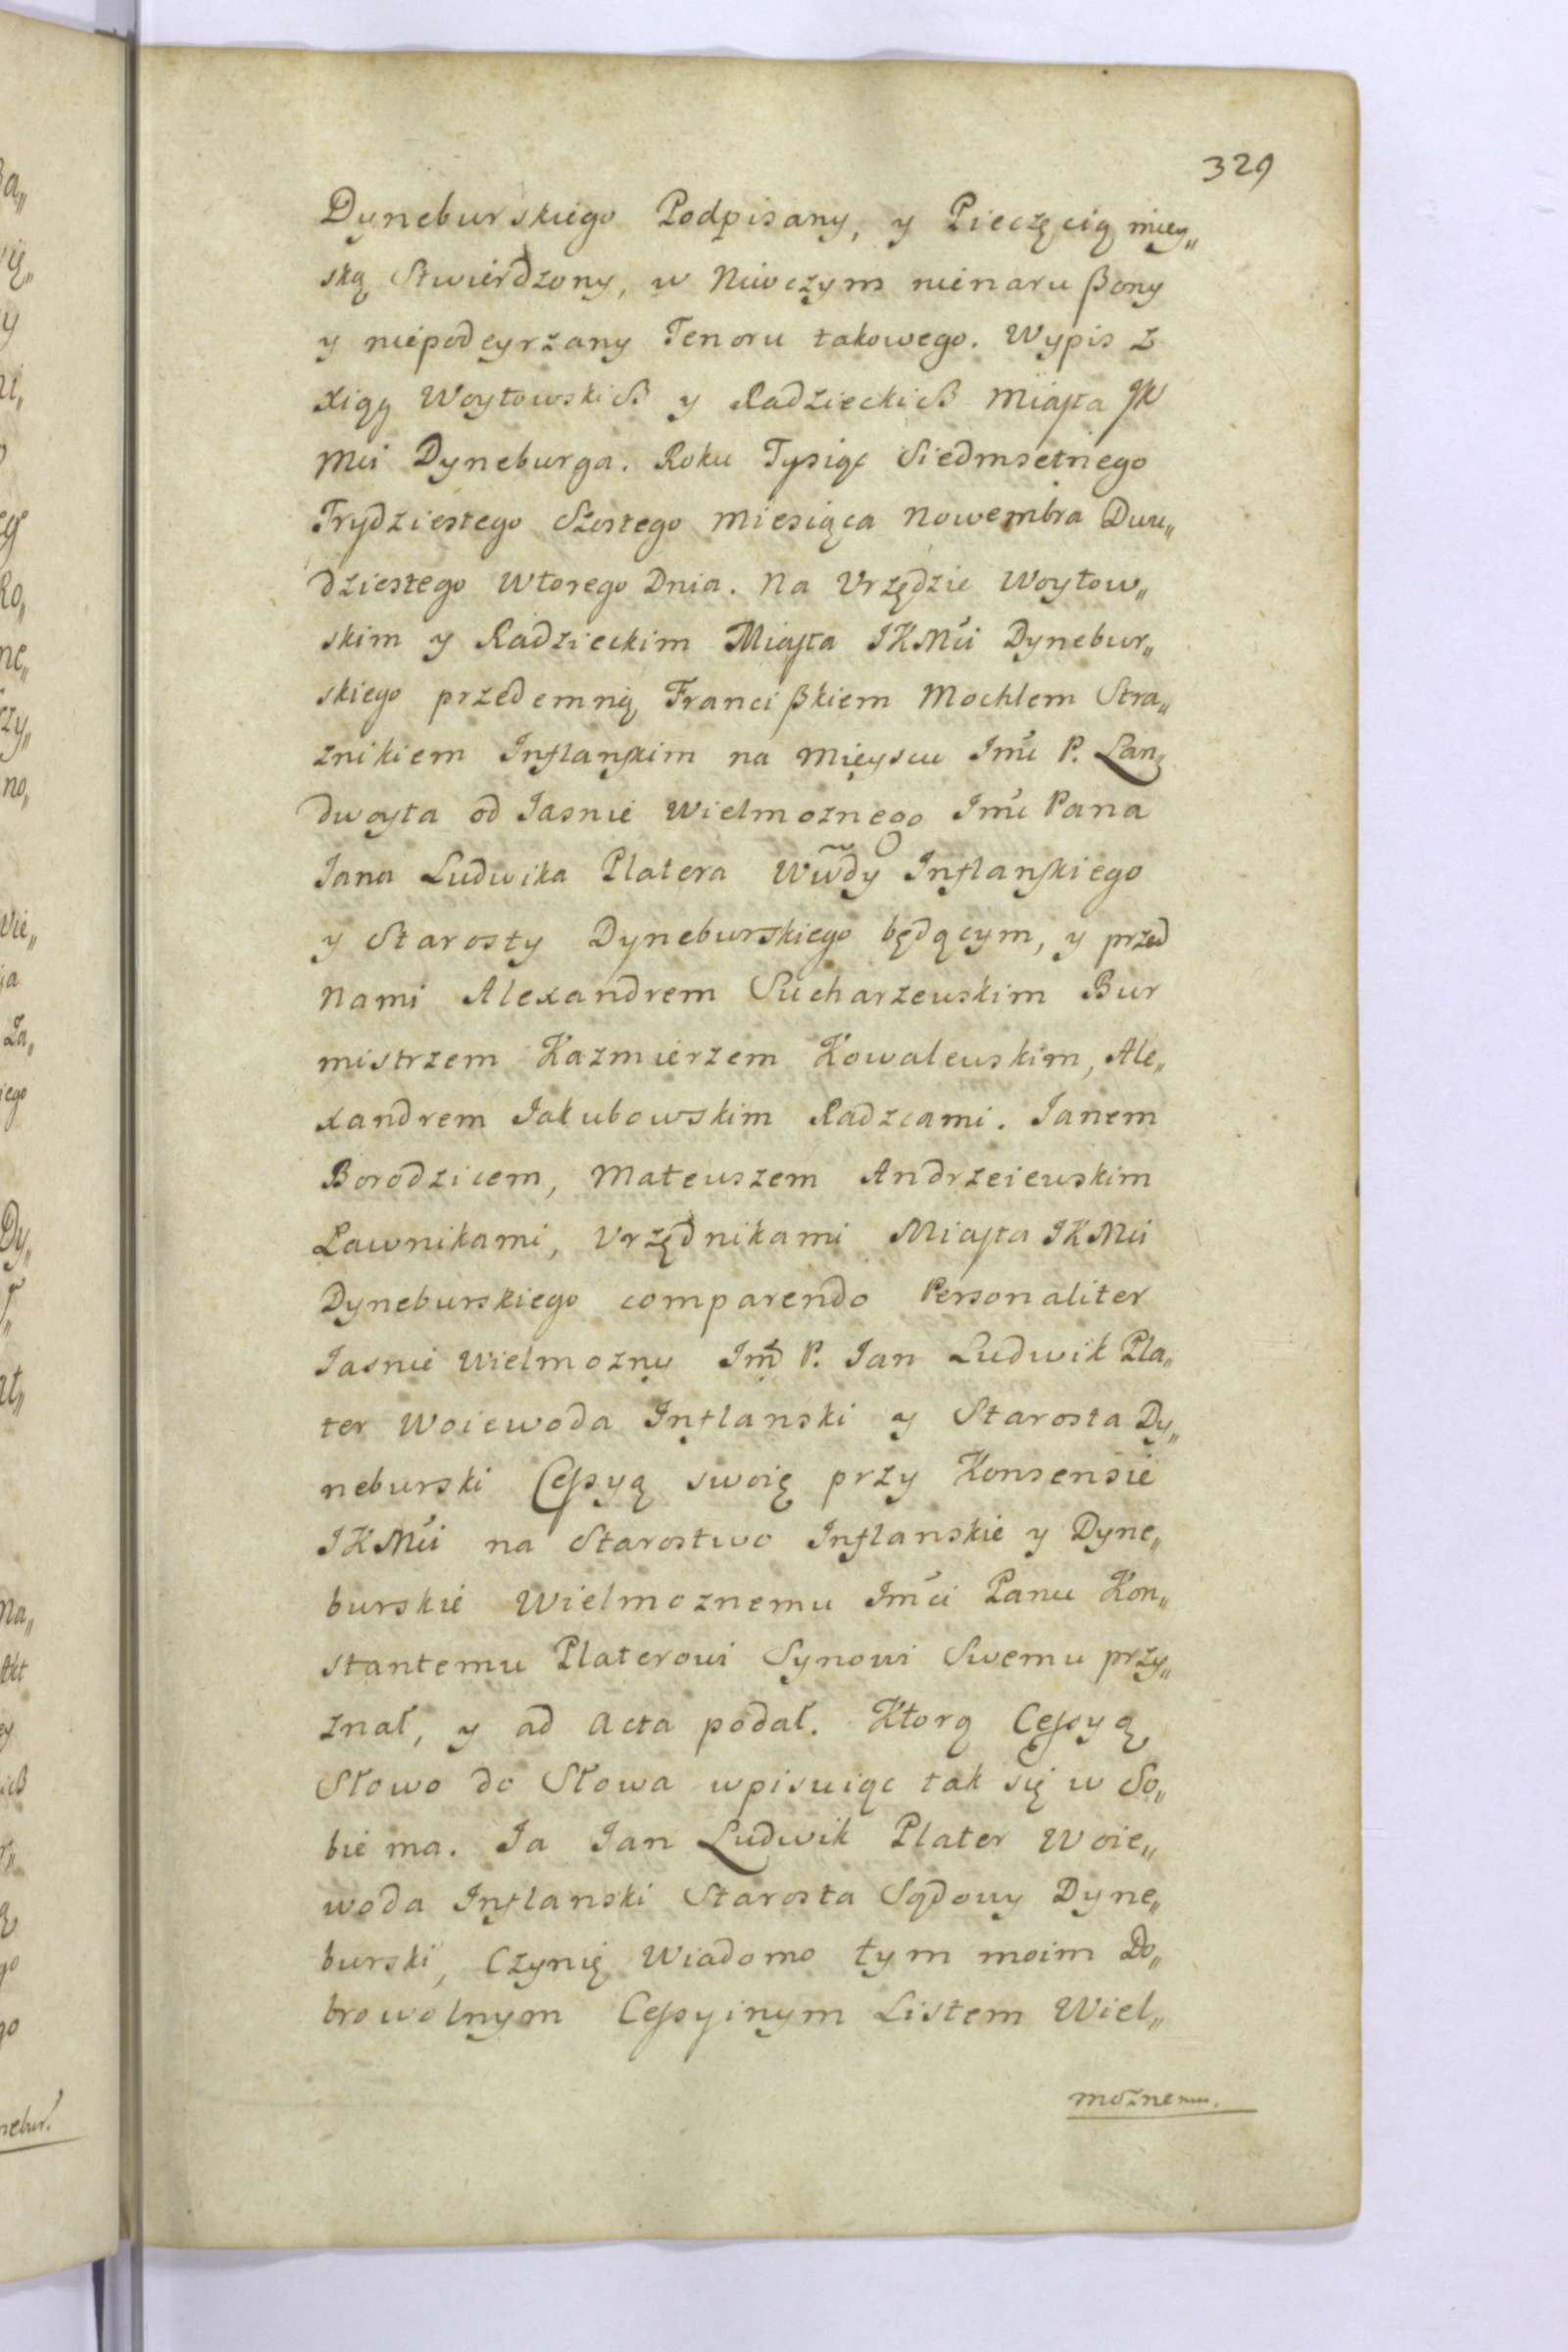 329
Dyneburskiego Podpisany, y Pieczęcią miey„
ską Stwierdzony, w Niwczym nienarußony
y niepodeyrzany Tenoru takowego. Wypis z
xiąg Woytowskich y Radzieckich Miasta JK
Mci Dyneburga. Roku Tysiąc Siedmsetnego
Trydziestego Szostego Miesiąca Nowembra Dwu„
dziestego Wtorego Dnia. Na Vrzędzie Woytow„
skim y Radzieckim Miasta JKMci Dynebur„
skiego przedemną Francißkiem Mochlem Stra„
znikiem Inflanskim na Mieyscu Imci P. Lan„
dwoyta od Jasnie Wielmoznego Imci Pana
Jana Ludwika Platera Wwdy Inflanskiego
y Starosty Dyneburskiego będącym, y przed
Nami Alexandrem Sucharzewskim Bur
mistrzem Kazmierzem Kowalewskim, Ale„
xandrem Jakubowskim Radzcami. Janem
Borodzicem, Mateuszem Andrzeiewskim
Ławnikami, Vrzędnikami Miasta JKMci
Dyneburskiego comparendo Personaliter
Jasnie Wielmozny Imć P. Jan Ludwik Pla„
ter Woiewoda Inflanski y Starosta Dy„
neburski Cessyą swoię przy Konsensie
JKMci na Starostwo Inflanskie y Dyne„
burskie Wielmoznemu Imci Panu Kon„
stantemu Platerowi Synowi Swemu przy„
znał, y ad Acta podał. Ktorą Cessyą
Słowo do Słowa wpisuiąc tak się w So„
bie ma. Ja Jan Ludwik Plater Woie„
woda Inflanski Starosta Sądowy Dyne„
burski, Czynię Wiadomo tym moim Do„
browolnym Cessyinym Listem Wiel„
moznemu.